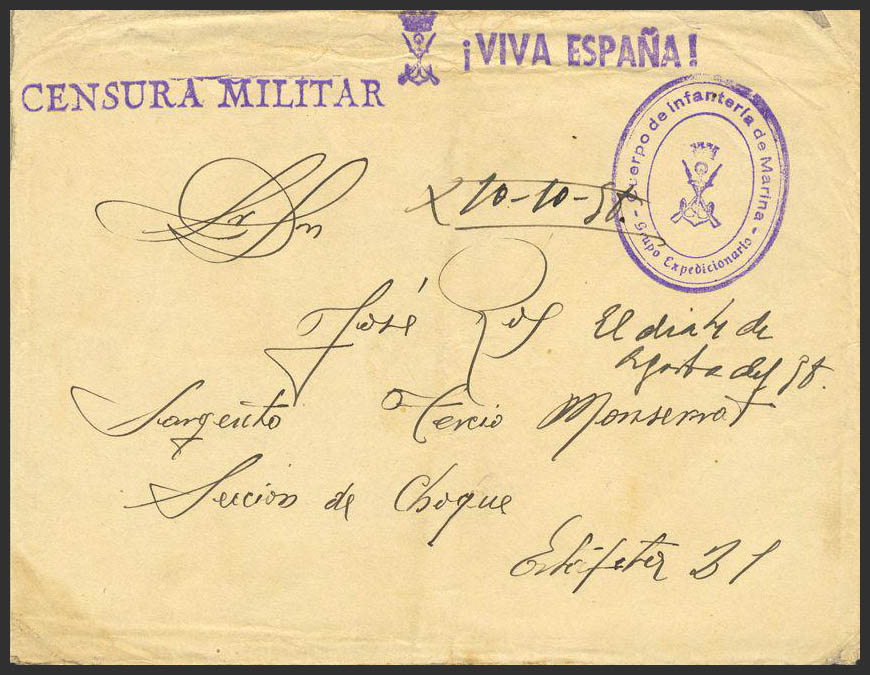 CENSURA MILITAR
¡VIVA ESPAÑA!
Cuerpo de Infantería de Marina
- Grupo Expedicionario -
Sr Dn
10-10-38.
José Ros
El dia 4 de
Agosto del 38.
Sargento Tercio Monserrat
Seccion de Choque
Estafeta 31